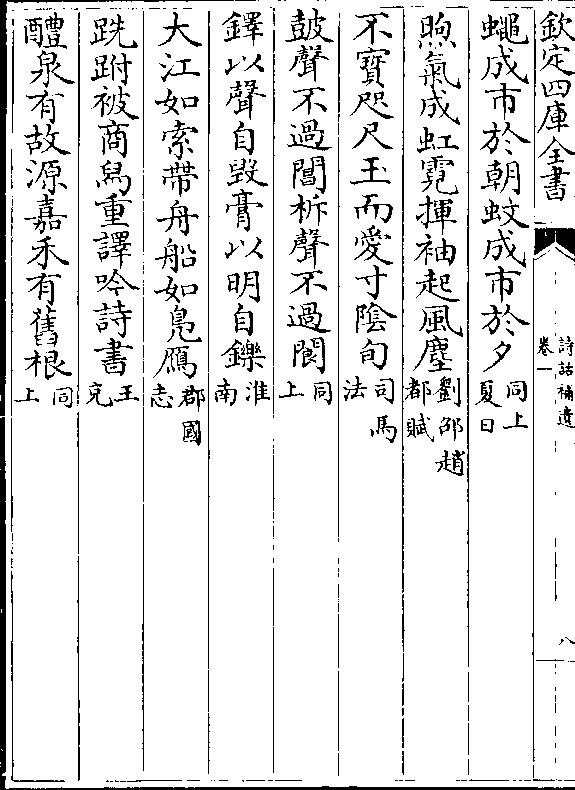 欽定四庫全書
詩話補遺
卷一
八
蠅成市於朝蚊成市於夕同上夏日
煦氣成虹霓揮袖起風塵劉邵趙都賦
不寳咫尺玉而愛寸陰旬司馬法
鼓聲不過閶柝聲不過閬同上
鐸以聲自毀膏以明自鑠淮南
大江如索帶舟船如鳬鴈郡國志
跣跗被商舄重譯吟詩書王充
醴泉有故源嘉禾有舊根同上